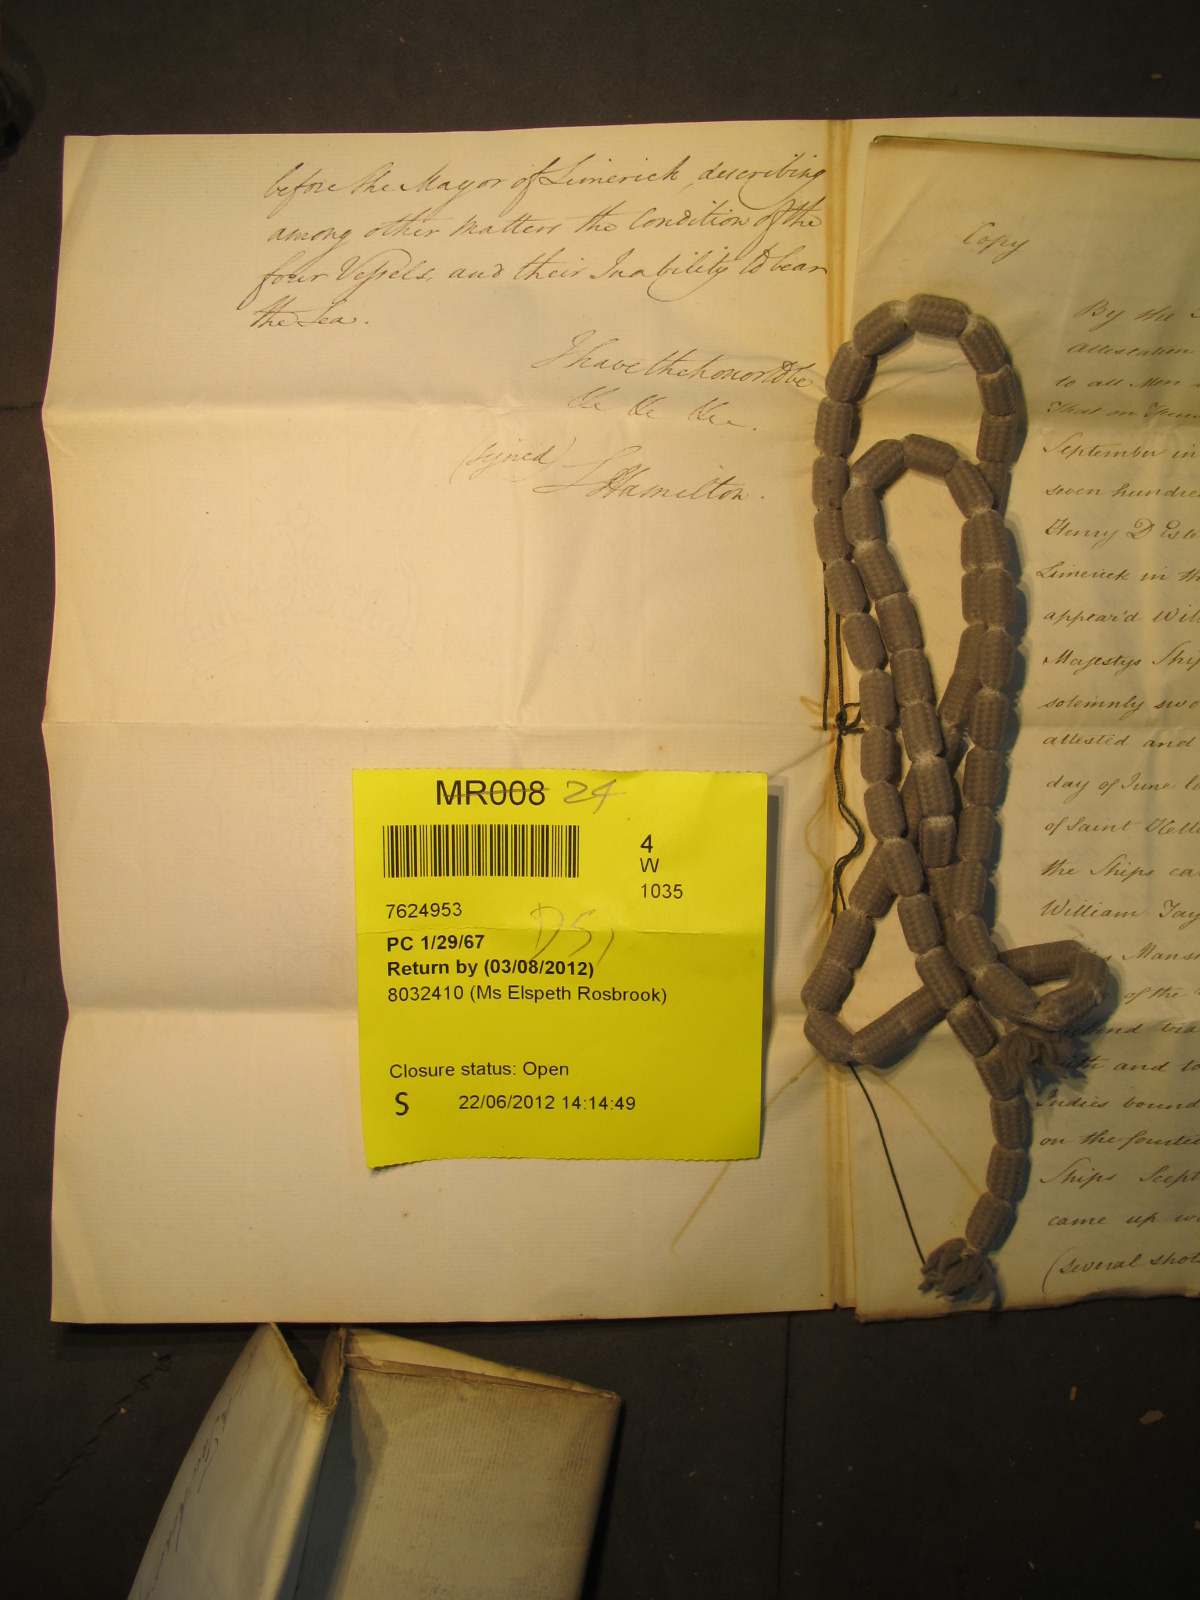 before the Mayor of Limerick, describing
among other matters the Condition of the
four Vessels, and their Inability to bear
the Sea.
I have the honor to be
&c &c &c.
(signed) Hamilton.
MR008 24
4
W
1035
7624953
DS
PC 1/29/67
Return by (03/08/2012)
8032410 (Ms Elspeth Rosbrook)
Closure status: Open
S 22/06/2012 14:14:49
Copy
By the
Attestation
to all Men
That on
September in
seven hundred
Henry D
Limerick in th
appear'd Will
Majestys Ship
solemnly swo
attested and
day of June l
of Saint Hell
the Ships ca
William Tay
Mans
of the
tra
and to
Indies bound
on the fourte
Ships Scept
came up w
(several shot